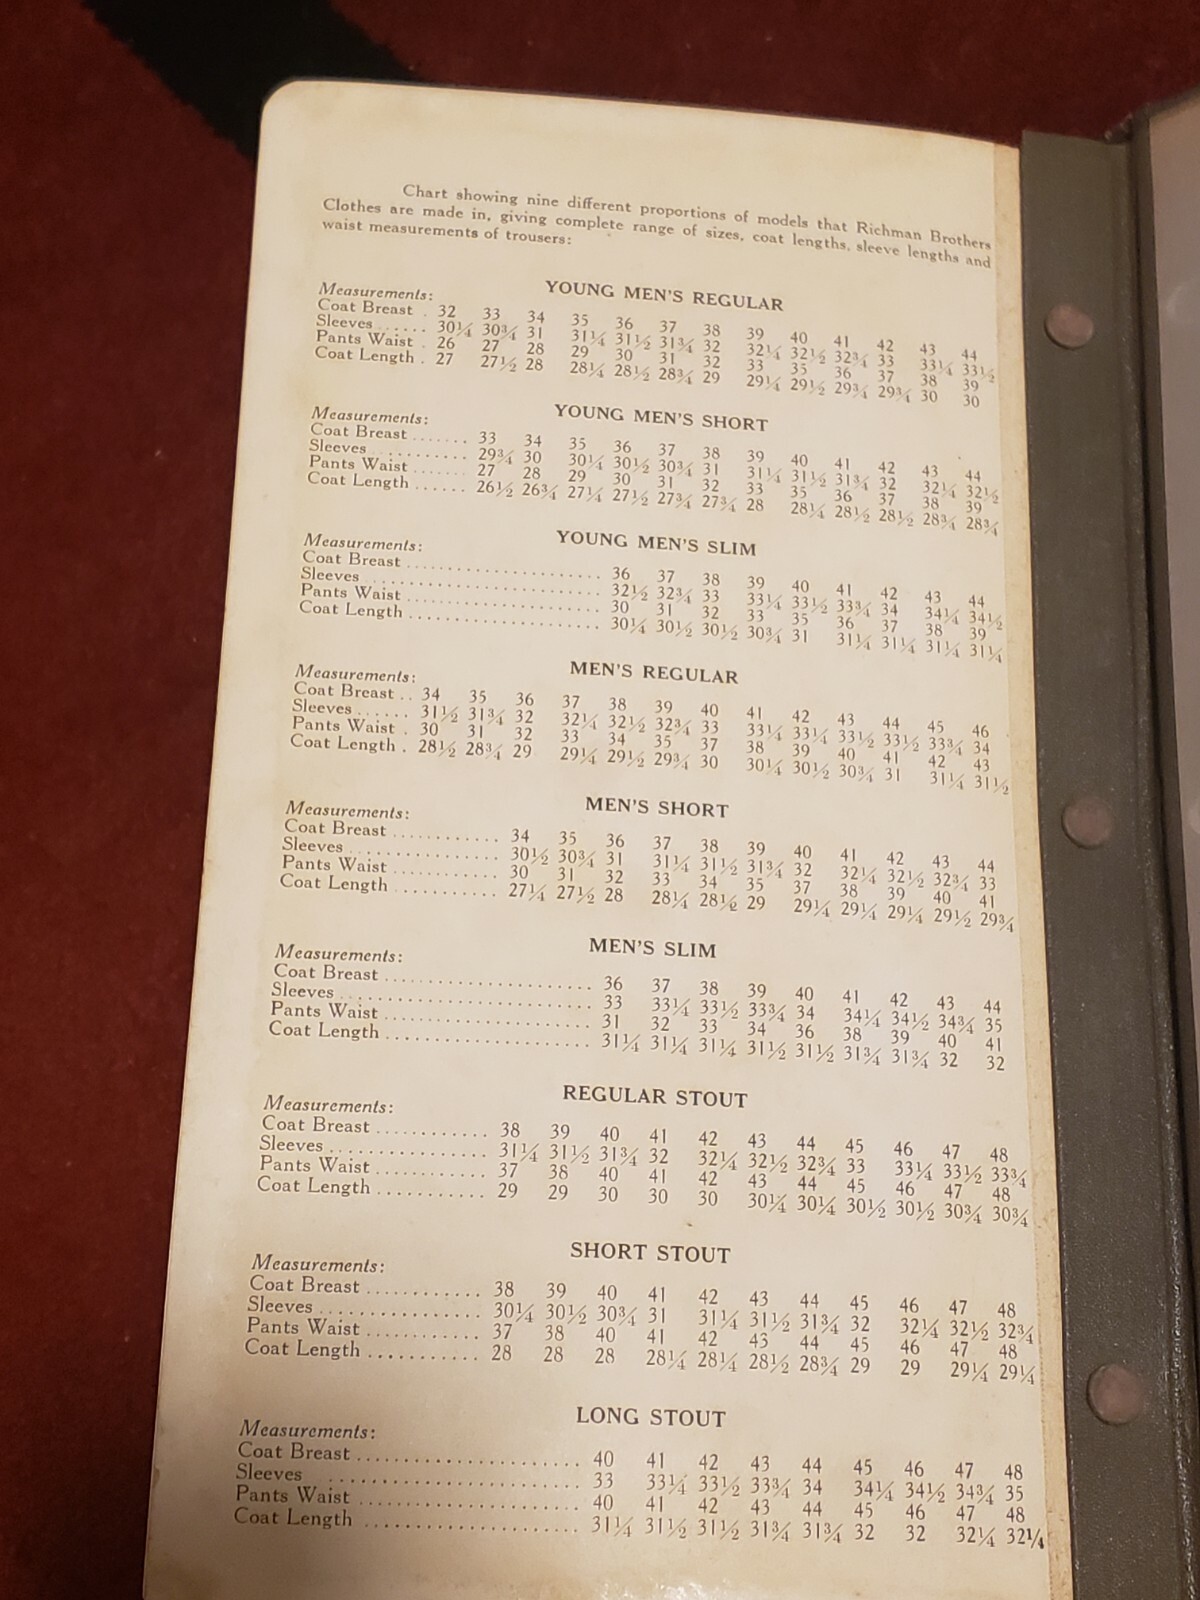 Chart showing nine different proportions of models that Richman Brothers
Clothes are made in, giving complete range of sizes, coat lengths, sleeve lengths and
waist measurements of trousers:
YOUNG MEN'S REGULAR
Measurements:
Coat Breast . 32 33 34 35 36 37 38 39 40 41 42 43 44
Sleeves ...... 30¼ 30¾ 31 31¼ 31½ 31¾ 32 32¼ 32½ 32¾ 33 33¼ 33½
Pants Waist . 26 27 28 29 30 31 32 33 35 36 37 38 39
Coat Length . 27 27½ 28 28¼ 28½ 28¾ 29 29¼ 29½ 29¾ 29¾ 30 30
YOUNG MEN'S SHORT
Measurements:
Coat Breast ....... 33 34 35 36 37 38 39 40 41 42 43 44
Sleeves ............ 29¾ 30 30¼ 30½ 30¾ 31 31¼ 31½ 31¾ 32 32¼ 32½
Pants Waist ....... 27 28 29 30 31 32 33 35 36 37 38 39
Coat Length ...... 26½ 26¾ 27¼ 27½ 27¾ 27¾ 28 28¼ 28½ 28½ 28¾ 28¾
YOUNG MEN'S SLIM
Measurements:
Coat Breast ...................... 36 37 38 39 40 41 42 43 44
Sleeves .......................... 32½ 32¾ 33 33¼ 33½ 33¾ 34 34¼ 34½
Pants Waist ...................... 30 31 32 33 35 36 37 38 39
Coat Length ...................... 30¼ 30½ 30½ 30¾ 31 31¼ 31¼ 31¼ 31¼
MEN'S REGULAR
Measurements:
Coat Breast .. 34 35 36 37 38 39 40 41 42 43 44 45 46
Sleeves ...... 31½ 31¾ 32 32¼ 32½ 32¾ 33 33¼ 33¼ 33½ 33½ 33¾ 34
Pants Waist . 30 31 32 33 34 35 37 38 39 40 41 42 43
Coat Length . 28½ 28¾ 29 29¼ 29½ 29¾ 30 30¼ 30½ 30¾ 31 31¼ 31½
MEN'S SHORT
Measurements:
Coat Breast ............ 34 35 36 37 38 39 40 41 42 43 44
Sleeves ................ 30½ 30¾ 31 31¼ 31½ 31¾ 32 32¼ 32½ 32¾ 33
Pants Waist ............ 30 31 32 33 34 35 37 38 39 40 41
Coat Length ............ 27¼ 27½ 28 28¼ 28½ 29 29¼ 29¼ 29¼ 29½ 29¾
MEN'S SLIM
Measurements:
Coat Breast ........................ 36 37 38 39 40 41 42 43 44
Sleeves ............................ 33 33¼ 33½ 33¾ 34 34¼ 34½ 34¾ 35
Pants Waist ........................ 31 32 33 34 36 38 39 40 41
Coat Length ........................ 31¼ 31¼ 31¼ 31½ 31½ 31¾ 31¾ 32 32
REGULAR STOUT
Measurements:
Coat Breast ............ 38 39 40 41 42 43 44 45 46 47 48
Sleeves ................ 31¼ 31½ 31¾ 32 32¼ 32½ 32¾ 33 33¼ 33½ 33¾
Pants Waist ............ 37 38 40 41 42 43 44 45 46 47 48
Coat Length ............ 29 29 30 30 30 30¼ 30¼ 30½ 30½ 30¾ 30¾
SHORT STOUT
Measurements:
Coat Breast ............ 38 39 40 41 42 43 44 45 46 47 48
Sleeves ................ 30¼ 30½ 30¾ 31 31¼ 31½ 31¾ 32 32¼ 32½ 32¾
Pants Waist ............ 37 38 40 41 42 43 44 45 46 47 48
Coat Length ............ 28 28 28 28¼ 28¼ 28½ 28¾ 29 29 29¼ 29¼
LONG STOUT
Measurements:
Coat Breast ....................... 40 41 42 43 44 45 46 47 48
Sleeves .......................... 33 33¼ 33½ 33¾ 34 34¼ 34½ 34¾ 35
Pants Waist ....................... 40 41 42 43 44 45 46 47 48
Coat Length ....................... 31¼ 31½ 31½ 31¾ 31¾ 32 32 32¼ 32¼